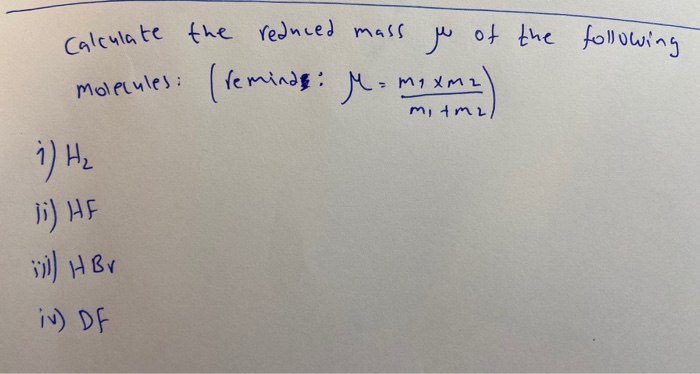 Calculate the reduced mass μ of the following
molecules: (remind: μ = m1 x m2 / m1 + m2)
i) H2
ii) HF
iii) HBr
iv) DF